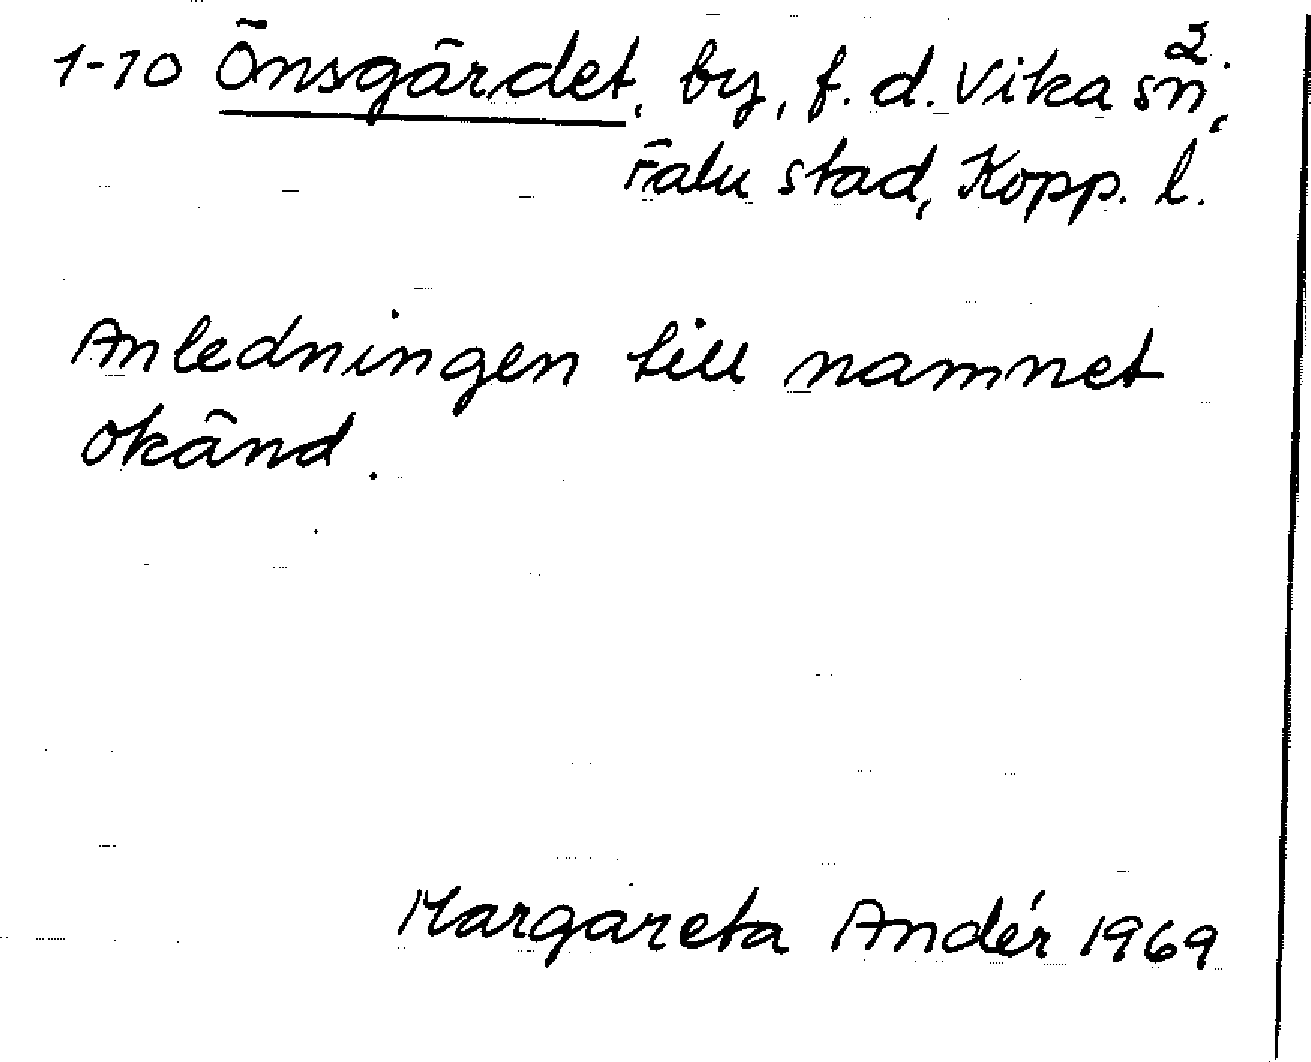 2.
1-10 Önsgärdet, by, f. d. Vika sn,
Falu stad, Kopp. l.
Anledningen till namnet
okänd.
Margareta Andér 1969